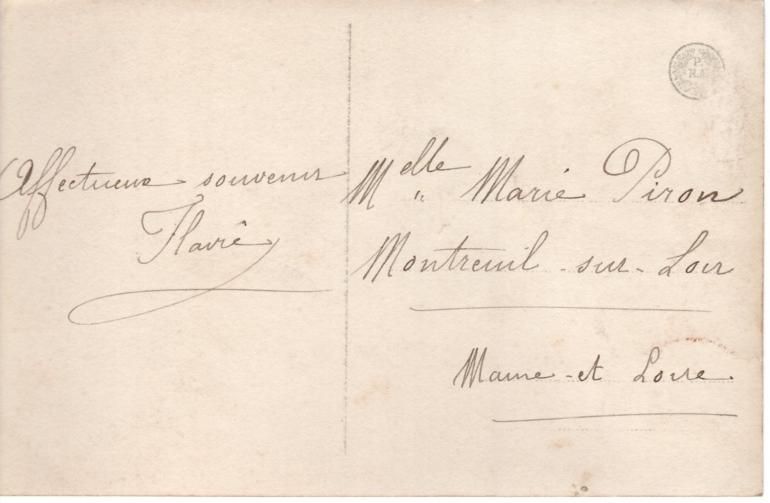 Affectueux souvenir
Flavie
Melle Marie Piron
Montreuil-sur-Loir
Maine-et Loire
P.
R.A.